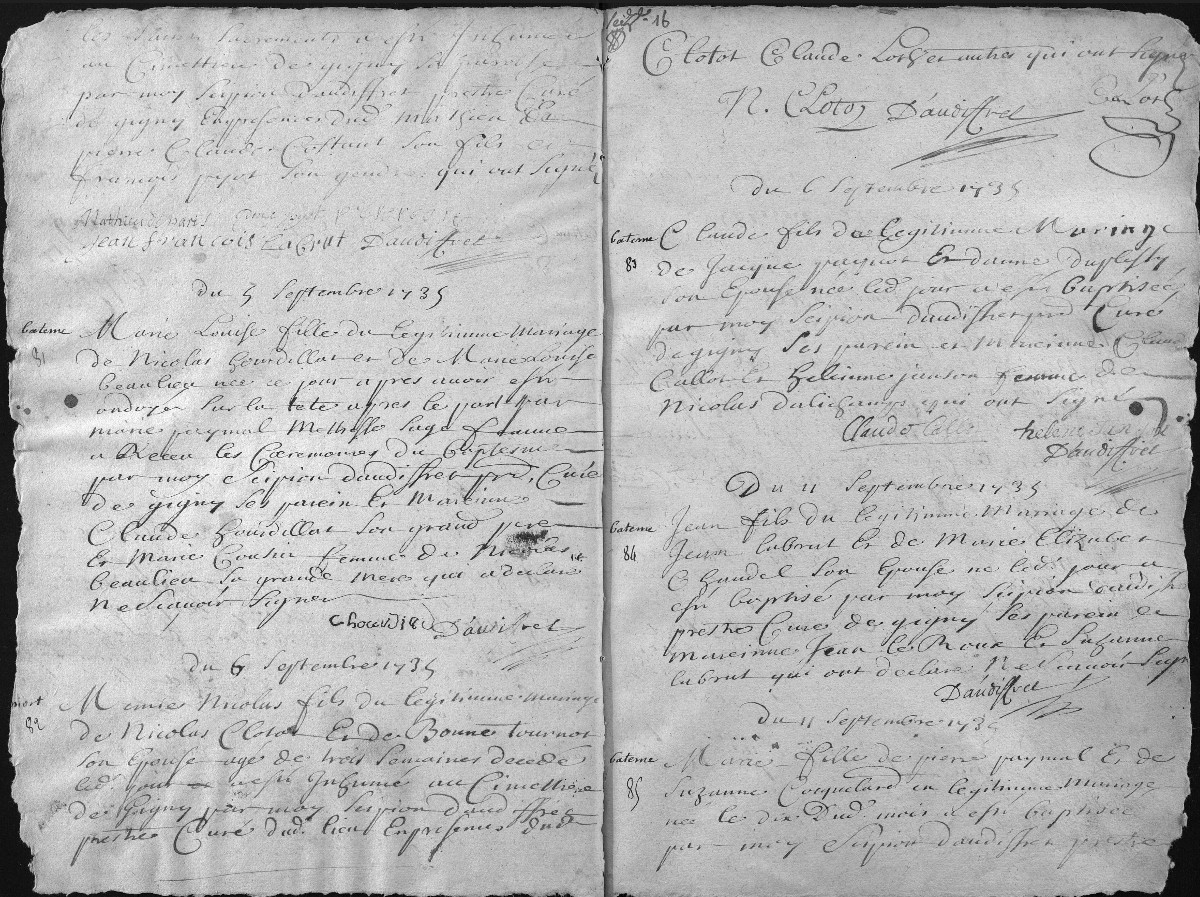 les Saints Sacrements a esté Inhumé
au Cimettiere de gigny sa paroisse
par moy Scipion daudiffret prestre Curé
de gigny En presence dud. Mathieu
pierre Claude Costant son fils et
françois payot son gendre qui ont signé
Jean francois Labrut Daudiffret
du 5 Septembre 1735
bateme
81
Marie Louise fille du legitimme mariage
de Nicolas hourdillat et de Marie Louise
beaulieu née ce jour apres avoir esté
ondoyée sur la tete apres le part par
marie paymal Metresse sage femme
a Receu les Ceremonies du baptesme
par moy Scipion daudiffret prd. Curé
de gigny ses parein Et Mareinne
Claude hourdillat son grand pere
Et Marie Cousin femme de Nicolas
beaulieu sa grande mere qui a declaré
Ne scavoir signer
Daudiffret
du 6 Septembre 1735
mort
82
Memies Nicolas fils du legitimme mariage
de Nicolas Clotot Et de Bonne tournot
son Epouse agé de trois semaines decedé
led. jour a esté Inhumé au Cimettiere
de Gigny par moy scipion daudiffret
prestre Curé dud. lieu En presence dud.
seize 16
Clotot Claude et autres qui ont signe
N. CLotot Daudiffret
Du 6 Septembre 1735
bateme
83
Claude fils du legitimme Mariage
de Jacque paynot Et danne duplessy
son Epouse née led. jour a esté baptisée
par moy Scipion daudiffret prd. Curé
de gigny ses parein et Mareinne Claude
Callot Et helienne janson femme de
Nicolas dalichamps qui ont signé
Claude Callot helene
Daudiffret
Du 11 Septembre 1735
bateme
84
Jean fils du legitimme Mariage de
Jean labrut Et de Marie Elizabet
Claudel son Epouse ne led. jour a
esté baptisé par moy Scipion daudif
prestre Curé de gigny ses parein et
mareinne Jean le Roux Et Suzanne
labrut qui ont declaré Ne Scavoir Sign
Daudiffret
Du 11 Septembre 1735
bateme
85
Marie fille de pierre paymal Et de
Suzanne Coquelard en legitimme Mariage
née le dix Dud. mois a esté baptisée
par moy Scipion daudiffret prestre